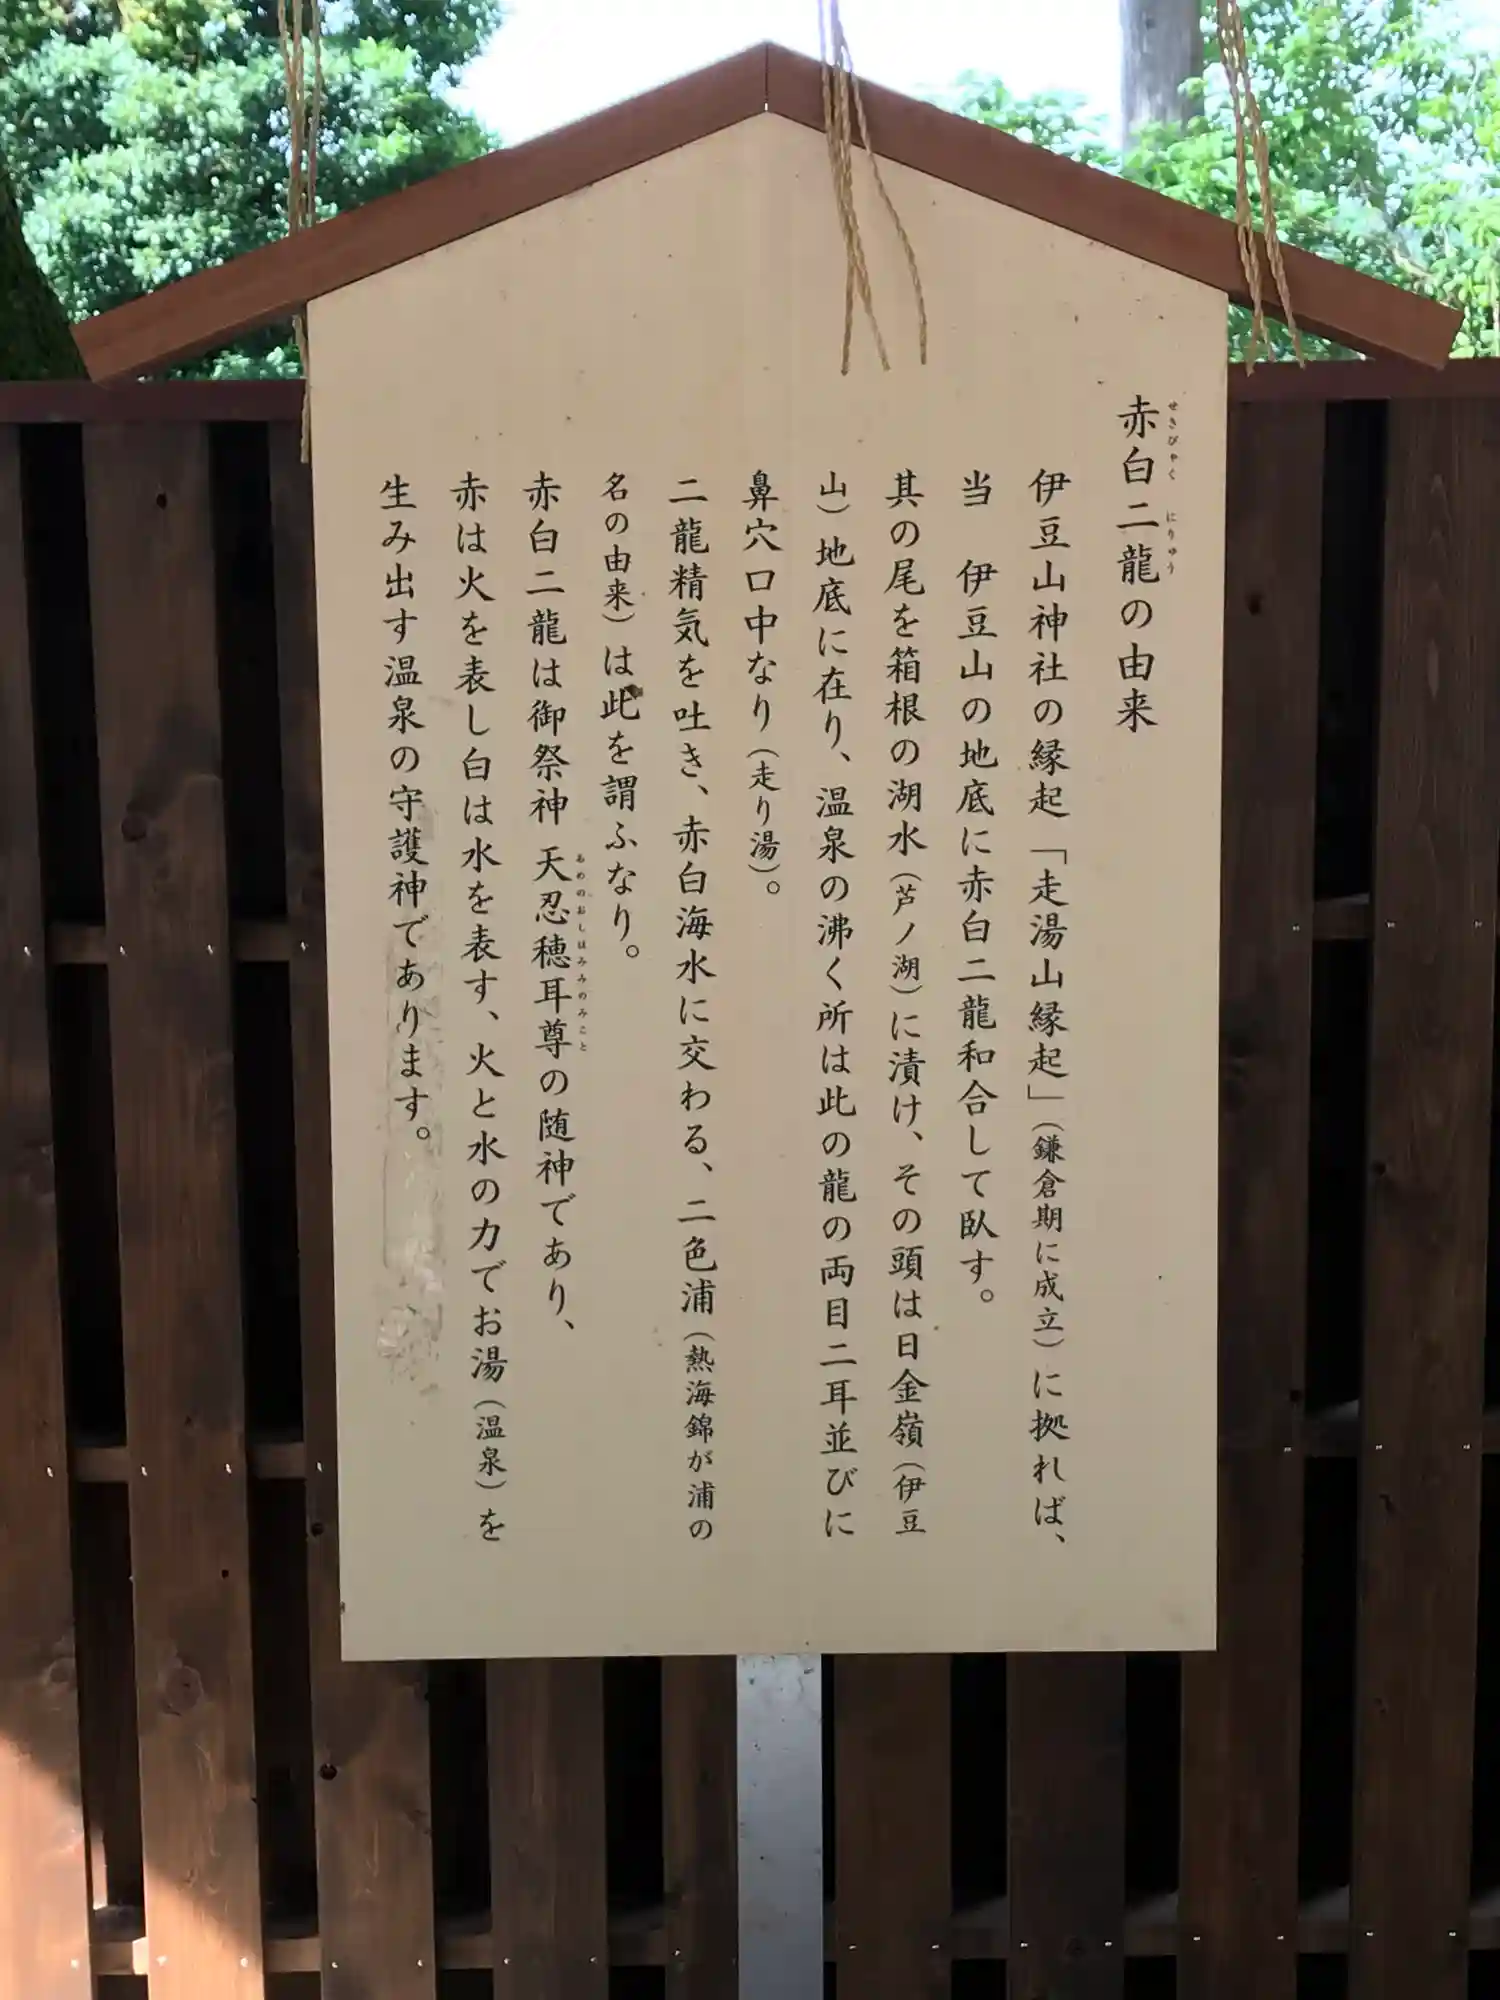 赤白二龍の由来
せきびゃく にりゅう
伊豆山神社の縁起「走湯山縁起」（鎌倉期に成立）に拠れば、
当　伊豆山の地底に赤白二龍和合して臥す。
其の尾を箱根の湖水（芦ノ湖）に漬け、その頭は日金嶺（伊豆
山）地底に在り、温泉の沸く所は此の龍の両目二耳並びに
鼻穴口中なり（走り湯）。
二龍精気を吐き、赤白海水に交わる、二色浦（熱海錦が浦の
名の由来）は此を謂ふなり。
赤白二龍は御祭神 天忍穂耳尊の随神であり、
あめのおしほみみのみこと
赤は火を表し白は水を表す、火と水の力でお湯（温泉）を
生み出す温泉の守護神であります。